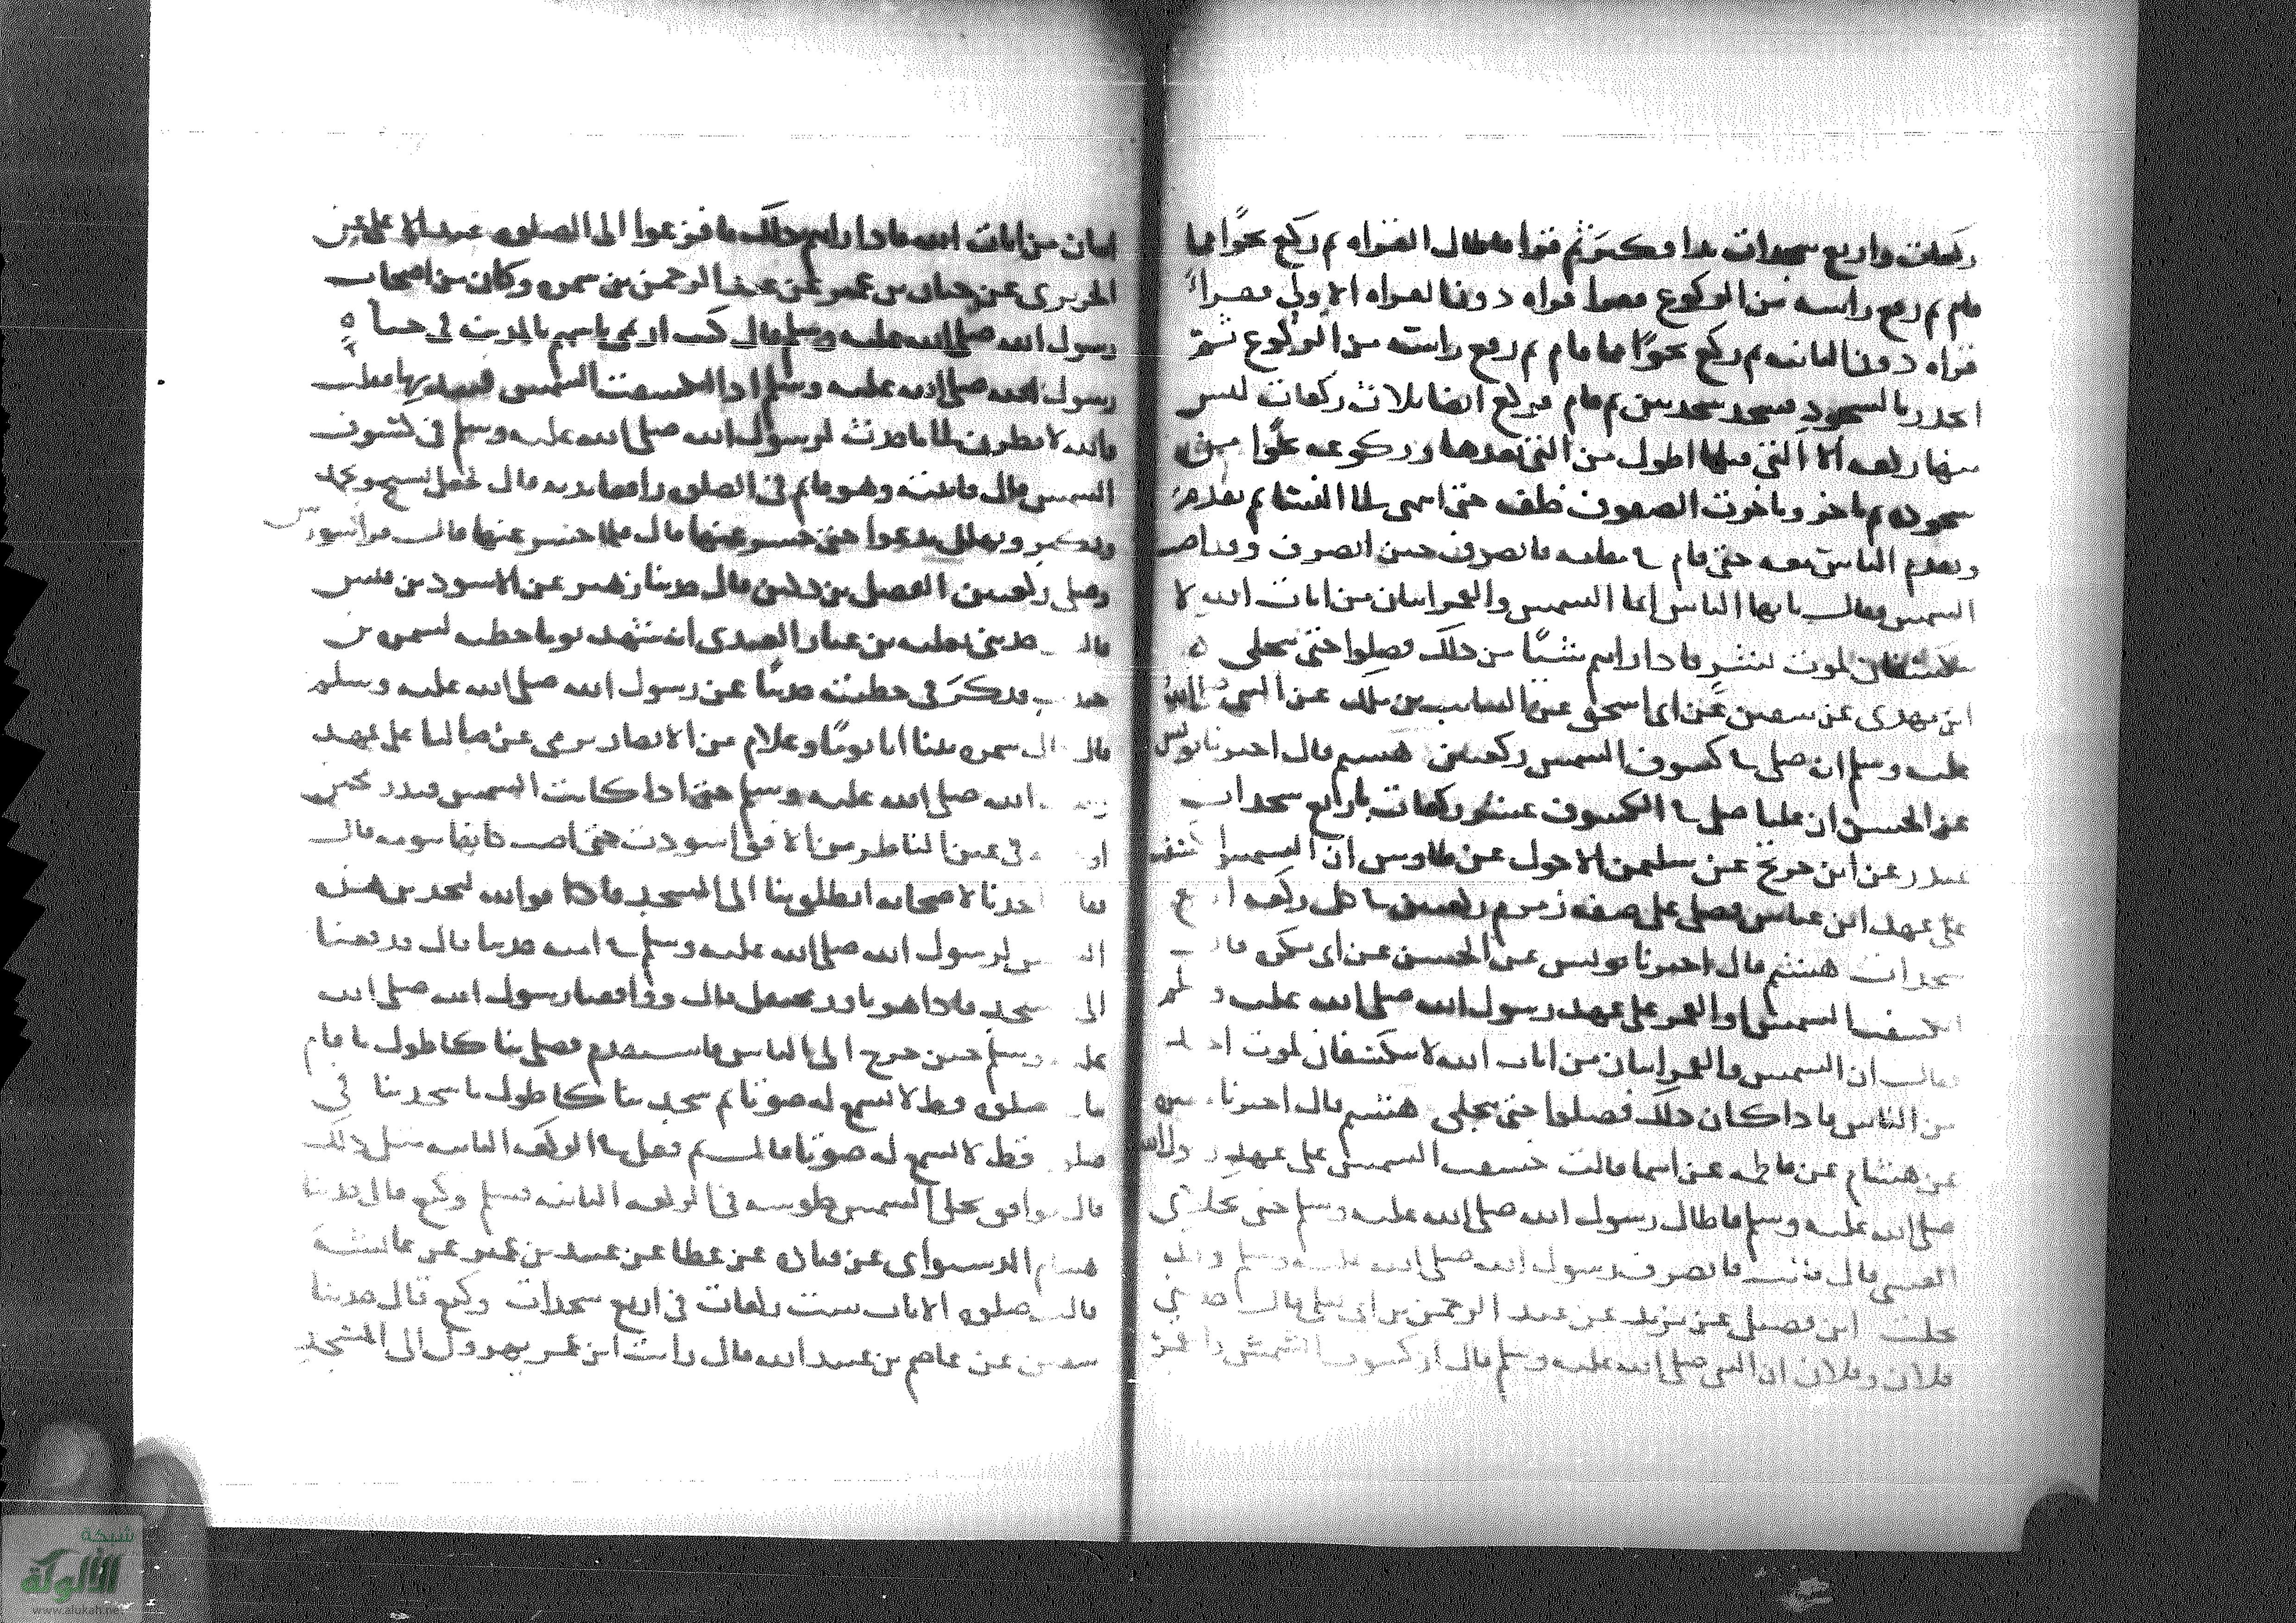 ركعات واربع سجدات بدا فكبر ثم قرا فاطال القراه ثم ركع نحوا مما
قام ثم رفع راسه من الركوع فقرا قراه دون القراه الاولي فقرا
قراه دون الثانيه ثم ركع نحوا مما قام ثم رفع راسه من الركوع ثم
انحدر بالسجود فسجد سجدتين ثم قام فركع ايضا ثلاث ركعات ليس
منها ركعه الا التي قبلها اطول من التي بعدها وركوعه نحوا من
سجوده ثم تاخر وتاخرت الصفوف خلفه حتى انتهى الى النسا ثم تقدم
وتقدم الناس معه حتى قام في مقامه فانصرف حين انصرف وقد اضت
الشمس فقال يا يها الناس انما الشمس والقمر ايتان من ايات الله لا
ينكسفان لموت بشر فاذا رايتم شيئا من ذلك فصلوا حتى تنجلي
ابن مهدي عن سفين عن ابي اسحق عن السايب بن ملك عن النبي صلى الله
عليه وسلم انه صلى في كسوف الشمس ركعتين هشيم قال اخبرنا يونس
عن الحسن ان عليا صلى في الكسوف عشر ركعات باربع سجدات
غندر عن ابن جريج عن سليمن الاحول عن طاوس ان الشمس انكسفت
على عهد ابن عباس فصلى على صفه زمزم ركعتين في كل ركعه اربع
سجدات هشيم قال اخبرنا يونس عن الحسن عن ابي بكره قال
انكسفت الشمس او القمر على عهد رسول الله صلى الله عليه وسلم
فقال ان الشمس والقمر ايتان من ايات الله لا ينكسفان لموت احد
من الناس فاذا كان ذلك فصلوا حتى تنجلي هشيم قال اخبرنا
عن هشام عن فاطمه عن اسما قالت خسفت الشمس على عهد رسول الله
صلى الله عليه وسلم فاطال رسول الله صلى الله عليه وسلم حتى تجلاني
الغشي قال قالت فانصرف رسول الله صلى الله عليه وسلم وقد
تجلت ابن فضيل عن يزيد عن عبد الرحمن بن ابي ليلى قال حدثني
فلان وفلان ان النبي صلى الله عليه وسلم قال ان كسوف الشمس والقمر
ايتان من ايات الله فاذا رايتم ذلك فافزعوا الى الصلوه عبد الاعلى عن
الجريري عن حيان بن عمير عن عبد الرحمن بن سمره وكان من اصحاب
رسول الله صلى الله عليه وسلم قال كنت ارتمي باسهم بالمدينه في حياة
رسول الله صلى الله عليه وسلم اذ انكسفت الشمس فنبذتها فقلت
والله لانظرن الى ما حدث لرسول الله صلى الله عليه وسلم في كسوف
الشمس قال فاتيته وهو قايم في الصلوه رافعا يديه قال فجعل يسبح ويحمد
ويكبر ويهلل ويدعوا حتى حسر عنها قال فلما حسر عنها قال قرا سورتين
وصلى ركعتين الفضل بن دكين قال حدثنا زهير عن الاسود بن قيس
قال حدثني ثعلبه بن عباد العبدي انه شهد يوما خطبه لسمره بن
جندب فذكر في خطبته حديثا عن رسول الله صلى الله عليه وسلم
قال قال سمره بينا انا يوما وغلام من الانصار نرمي غرضا لنا على عهد
رسول الله صلى الله عليه وسلم حتى اذا كانت الشمس قيد رمحين
او ثلثه في عين الناظر من الافق اسودت حتى اضت كانها تنومه فقال
احدنا لصاحبه انطلق بنا الى المسجد فوالله ليحدثن هذه
الشمس لرسول الله صلى الله عليه وسلم في امته حدثا قال فدفعنا
الى المسجد فاذا هو بارز محتفل قال ووافقنا رسول الله صلى الله
عليه وسلم حين خرج الى الناس فاستقدم فصلى بنا كاطول ما قام
بنا في صلوه قط لا نسمع له صوتا ثم سجد بنا كاطول ما سجد بنا في
صلوه قط لا نسمع له صوتا قال ثم فعل في الركعه الثانيه مثل ذلك
قال فوافق تجلي الشمس جلوسه في الركعه الثانيه فسلم وكيع قال حدثنا
هشام الدستوائي عن قتاده عن عطا عن عبيد بن عمير عن عائشة
قالت صلوه الايات ست ركعات في اربع سجدات وكيع قال حدثنا
سفين عن عاصم بن عبيد الله قال رايت ابن عمر يهرول الى المسجد
شبكة
الألوكة
www.alukah.net